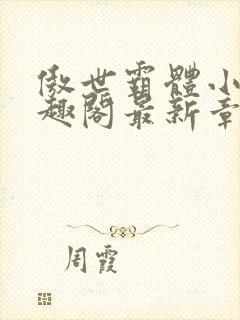 傲世霸體小
趣閣最新章
周霞